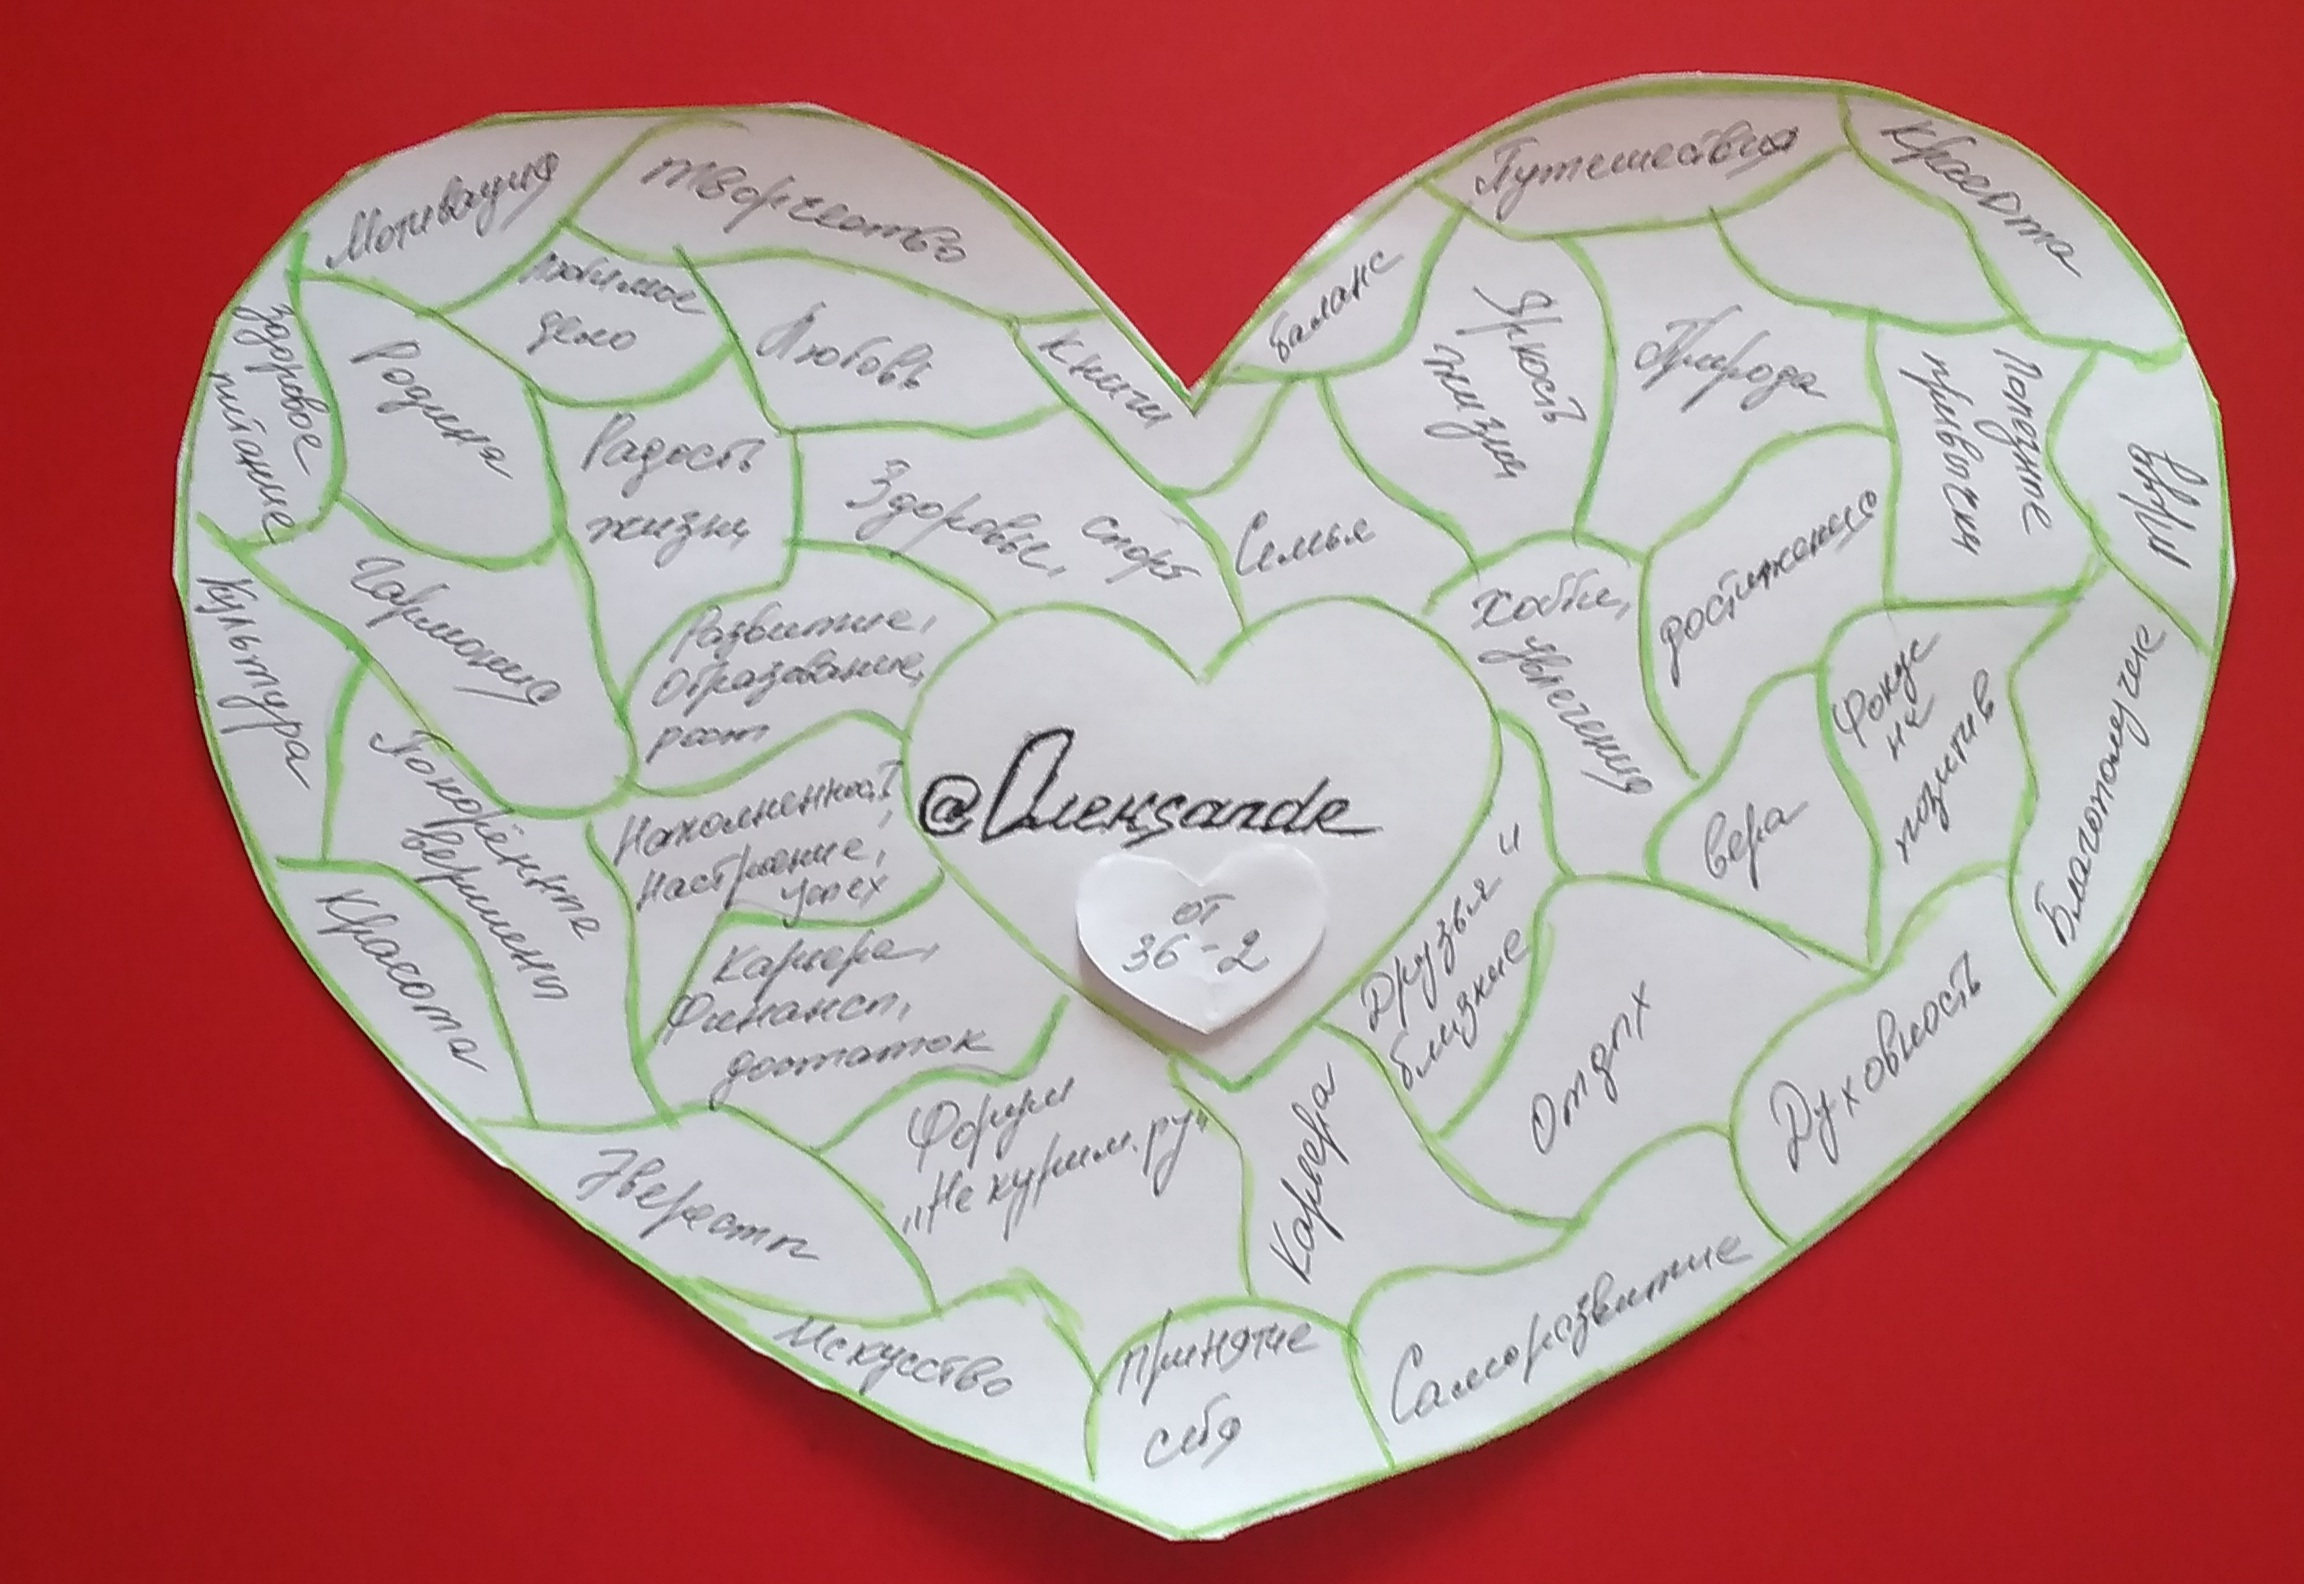 Мотивация
творчество
Любимое
дело
Любовь
Книги
Здоровое
питание
Родина
Радость
жизни
Здоровье, спорт
Гармония
Культура
Развитие,
образование,
рост
Покорённые
вершины
Наполненность,
Настроение,
успех
Красота
Карьера,
Финансы,
достаток
Эвересты
Форум
„Не курим.ру"
Искусство
Принятие
себя
@Олекsandr
от
36-2
Путешествия
Красота
Баланс
Яркость
жизни
Природа
Полезные
привычки
Семья
Хобби,
увлечения
достижения
вера
Фокус
на
позитив
Благополучие
Друзья и
близкие
Отдых
Духовность
Карьера
Саморазвитие